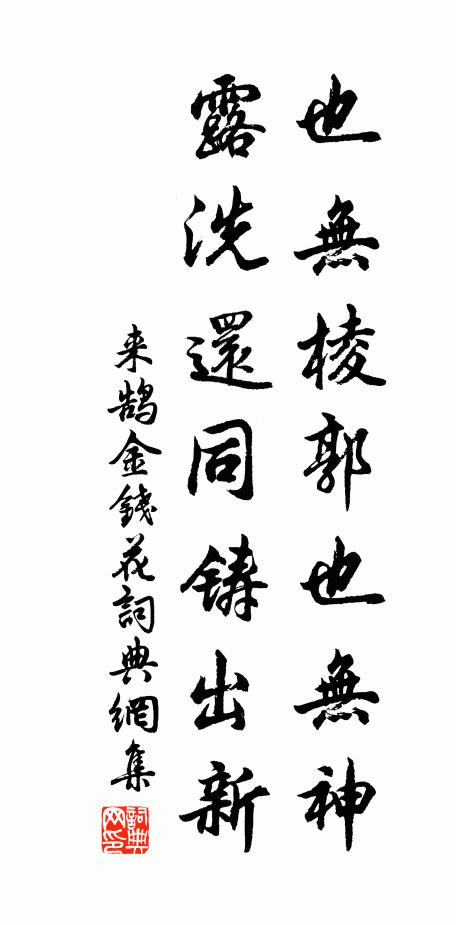 也無棱郭也無神
露洗還同鑄出新
来鹄金錢花詞典網集
詞典网印